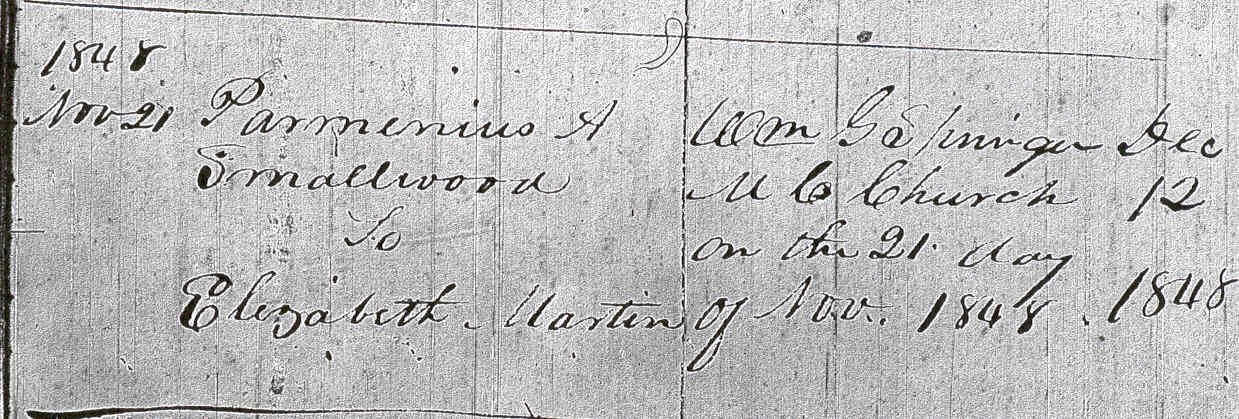 1848
Nov 21 Parmenius A
Smallwood
To
Elizabeth Martin
Wm G Springer Dec
M E Church 12
on the 21 day
of Nov. 1848. 1848